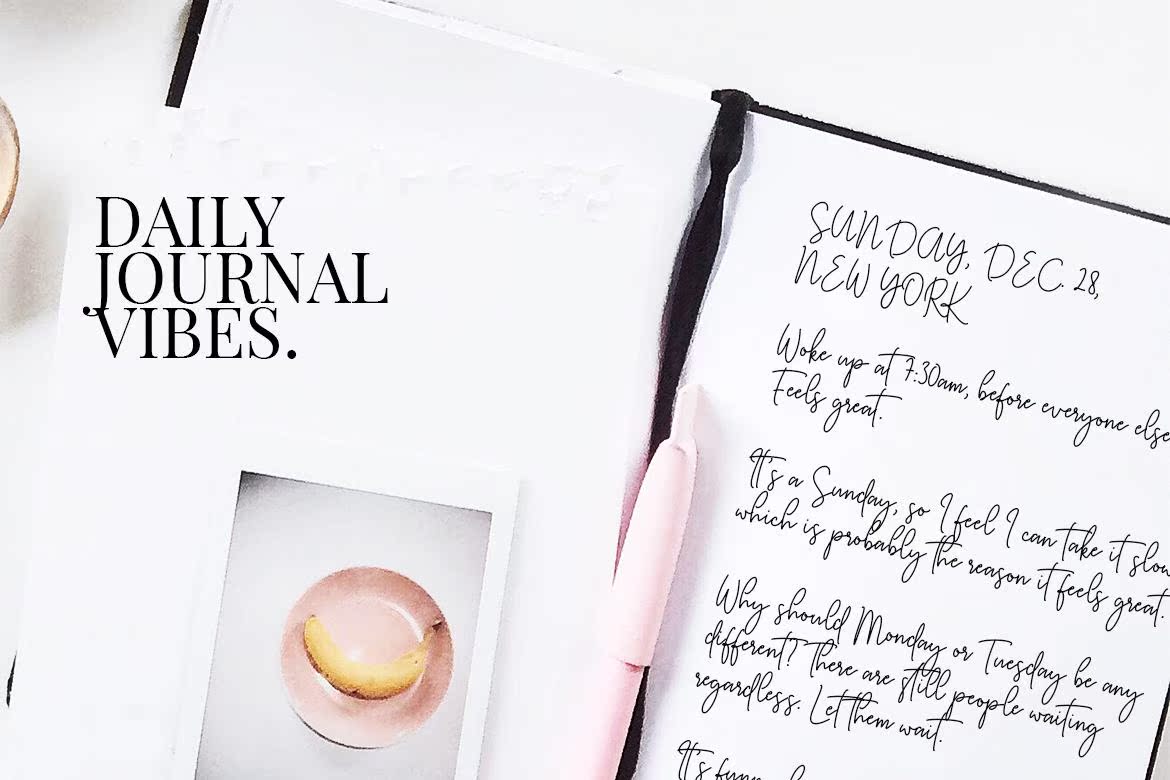 DAILY
JOURNAL
VIBES.
SUNDAY, DEC. 28,
NEW YORK
Woke up at 7:30am, before everyone else
Feels great.
It's a Sunday, so I feel I can take it slow
which is probably the reason it feels great.
Why should Monday or Tuesday be any
different? There are still people waiting
regardless. Let them wait.
It's